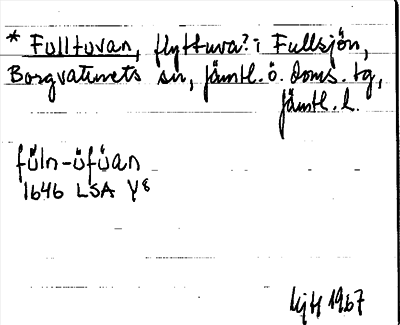 * Fulltuvan, flyttuva? i Fullsjön,
Borgvattnets sn, Jämtl. ö. doms. tg,
Jämtl. l.
füln-üfüan
1646 LSA Y8
1967